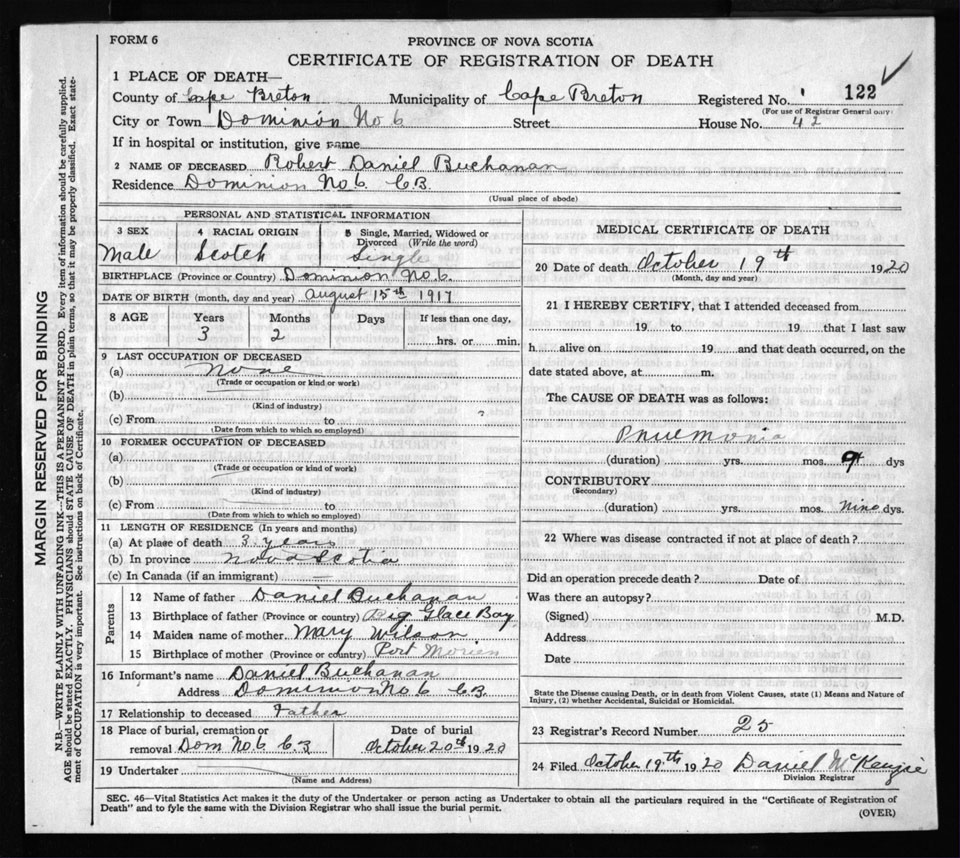 FORM 6
PROVINCE OF NOVA SCOTIA
CERTIFICATE OF REGISTRATION OF DEATH
1 PLACE OF DEATH—
County of Cape Breton Municipality of Cape Breton Registered No. 122
(For use of Registrar General only)
City or Town Dominion No 6 Street House No. 42
If in hospital or institution, give name
2 NAME OF DECEASED Robert Daniel Buchanan
Residence Dominion No 6 C.B.
(Usual place of abode)
PERSONAL AND STATISTICAL INFORMATION
3 SEX 4 RACIAL ORIGIN 5 Single, Married, Widowed or Divorced (Write the word)
Male Scotch Single
BIRTHPLACE (Province or Country) Dominion No. 6.
DATE OF BIRTH (month, day and year) August 15th 1917
8 AGE Years Months Days If less than one day,
3 2 hrs. or min.
9 LAST OCCUPATION OF DECEASED
(a) None
(Trade or occupation or kind or work)
(b)
(Kind of industry)
(c) From to ?
(Date from which to which so employed)
10 FORMER OCCUPATION OF DECEASED
(a)
(Trade or occupation or kind of work)
(b)
(Kind of industry)
(c) From to
(Date from which to which so employed)
11 LENGTH OF RESIDENCE (In years and months)
(a) At place of death 3 years
(b) In province Nova Scotia
(c) In Canada (if an immigrant)
Parents
12 Name of father Daniel Buchanan
13 Birthplace of father (Province or country) Big Glace Bay
14 Maiden name of mother Mary Wilson
15 Birthplace of mother (Province or country) Port Morien
16 Informant's name Daniel Buchanan
Address Dominion No 6 C.B.
17 Relationship to deceased Father
18 Place of burial, cremation or removal Dom No. 6 C.B
Date of burial
October 20th 1920
19 Undertaker
(Name and Address)
MEDICAL CERTIFICATE OF DEATH
20 Date of death October 19th 1920
(Month, day and year)
21 I HEREBY CERTIFY, that I attended deceased from
19 to 19 that I last saw
h alive on 19 and that death occurred, on the
date stated above, at m.
The CAUSE OF DEATH was as follows:
Pnuemonia
(duration) yrs. mos. 9 dys
CONTRIBUTORY
(Secondary)
(duration) yrs. mos. Nine dys.
22 Where was disease contracted if not at place of death?
Did an operation precede death? Date of
Was there an autopsy?
(Signed) M.D.
Address
Date
State the Disease causing Death, or in death from Violent Causes, state (1) Means and Nature of Injury, (2) whether Accidental, Suicidal or Homicidal.
23 Registrar's Record Number 25
24 Filed October 19th 1920 Daniel McKenzie
Division Registrar
SEC. 46—Vital Statistics Act makes it the duty of the Undertaker or person acting as Undertaker to obtain all the particulars required in the "Certificate of Registration of
Death" and to fyle the same with the Division Registrar who shall issue the burial permit.
(OVER)
MARGIN RESERVED FOR BINDING
N.B.—WRITE PLAINLY WITH UNFADING INK—THIS IS A PERMANENT RECORD. Every item of information should be carefully supplied.
AGE should be stated EXACTLY. PHYSICIANS should STATE CAUSE OF DEATH in plain terms, so that it may be properly classified. Exact state-
ment of OCCUPATION is very important. See instructions on back of Certificate.